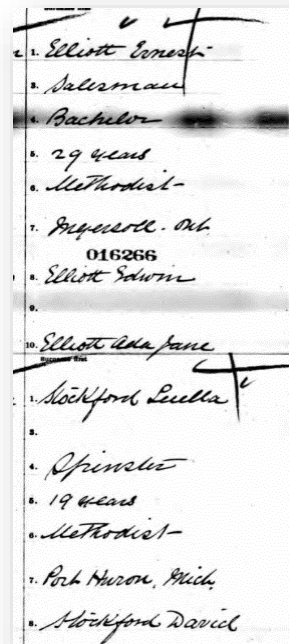 1. Elliott Ernest
3. Salesman
4. Bachelor
5. 29 years
6. Methodist
7. Ingersoll. Ont.
016266
8. Elliott Edwin
9.
10. Elliott Ada Jane
Surname first
1. Stockford Luella
3.
4. Spinster
5. 19 years
6. Methodist
7. Port Huron, Mich.
8. Stockford David